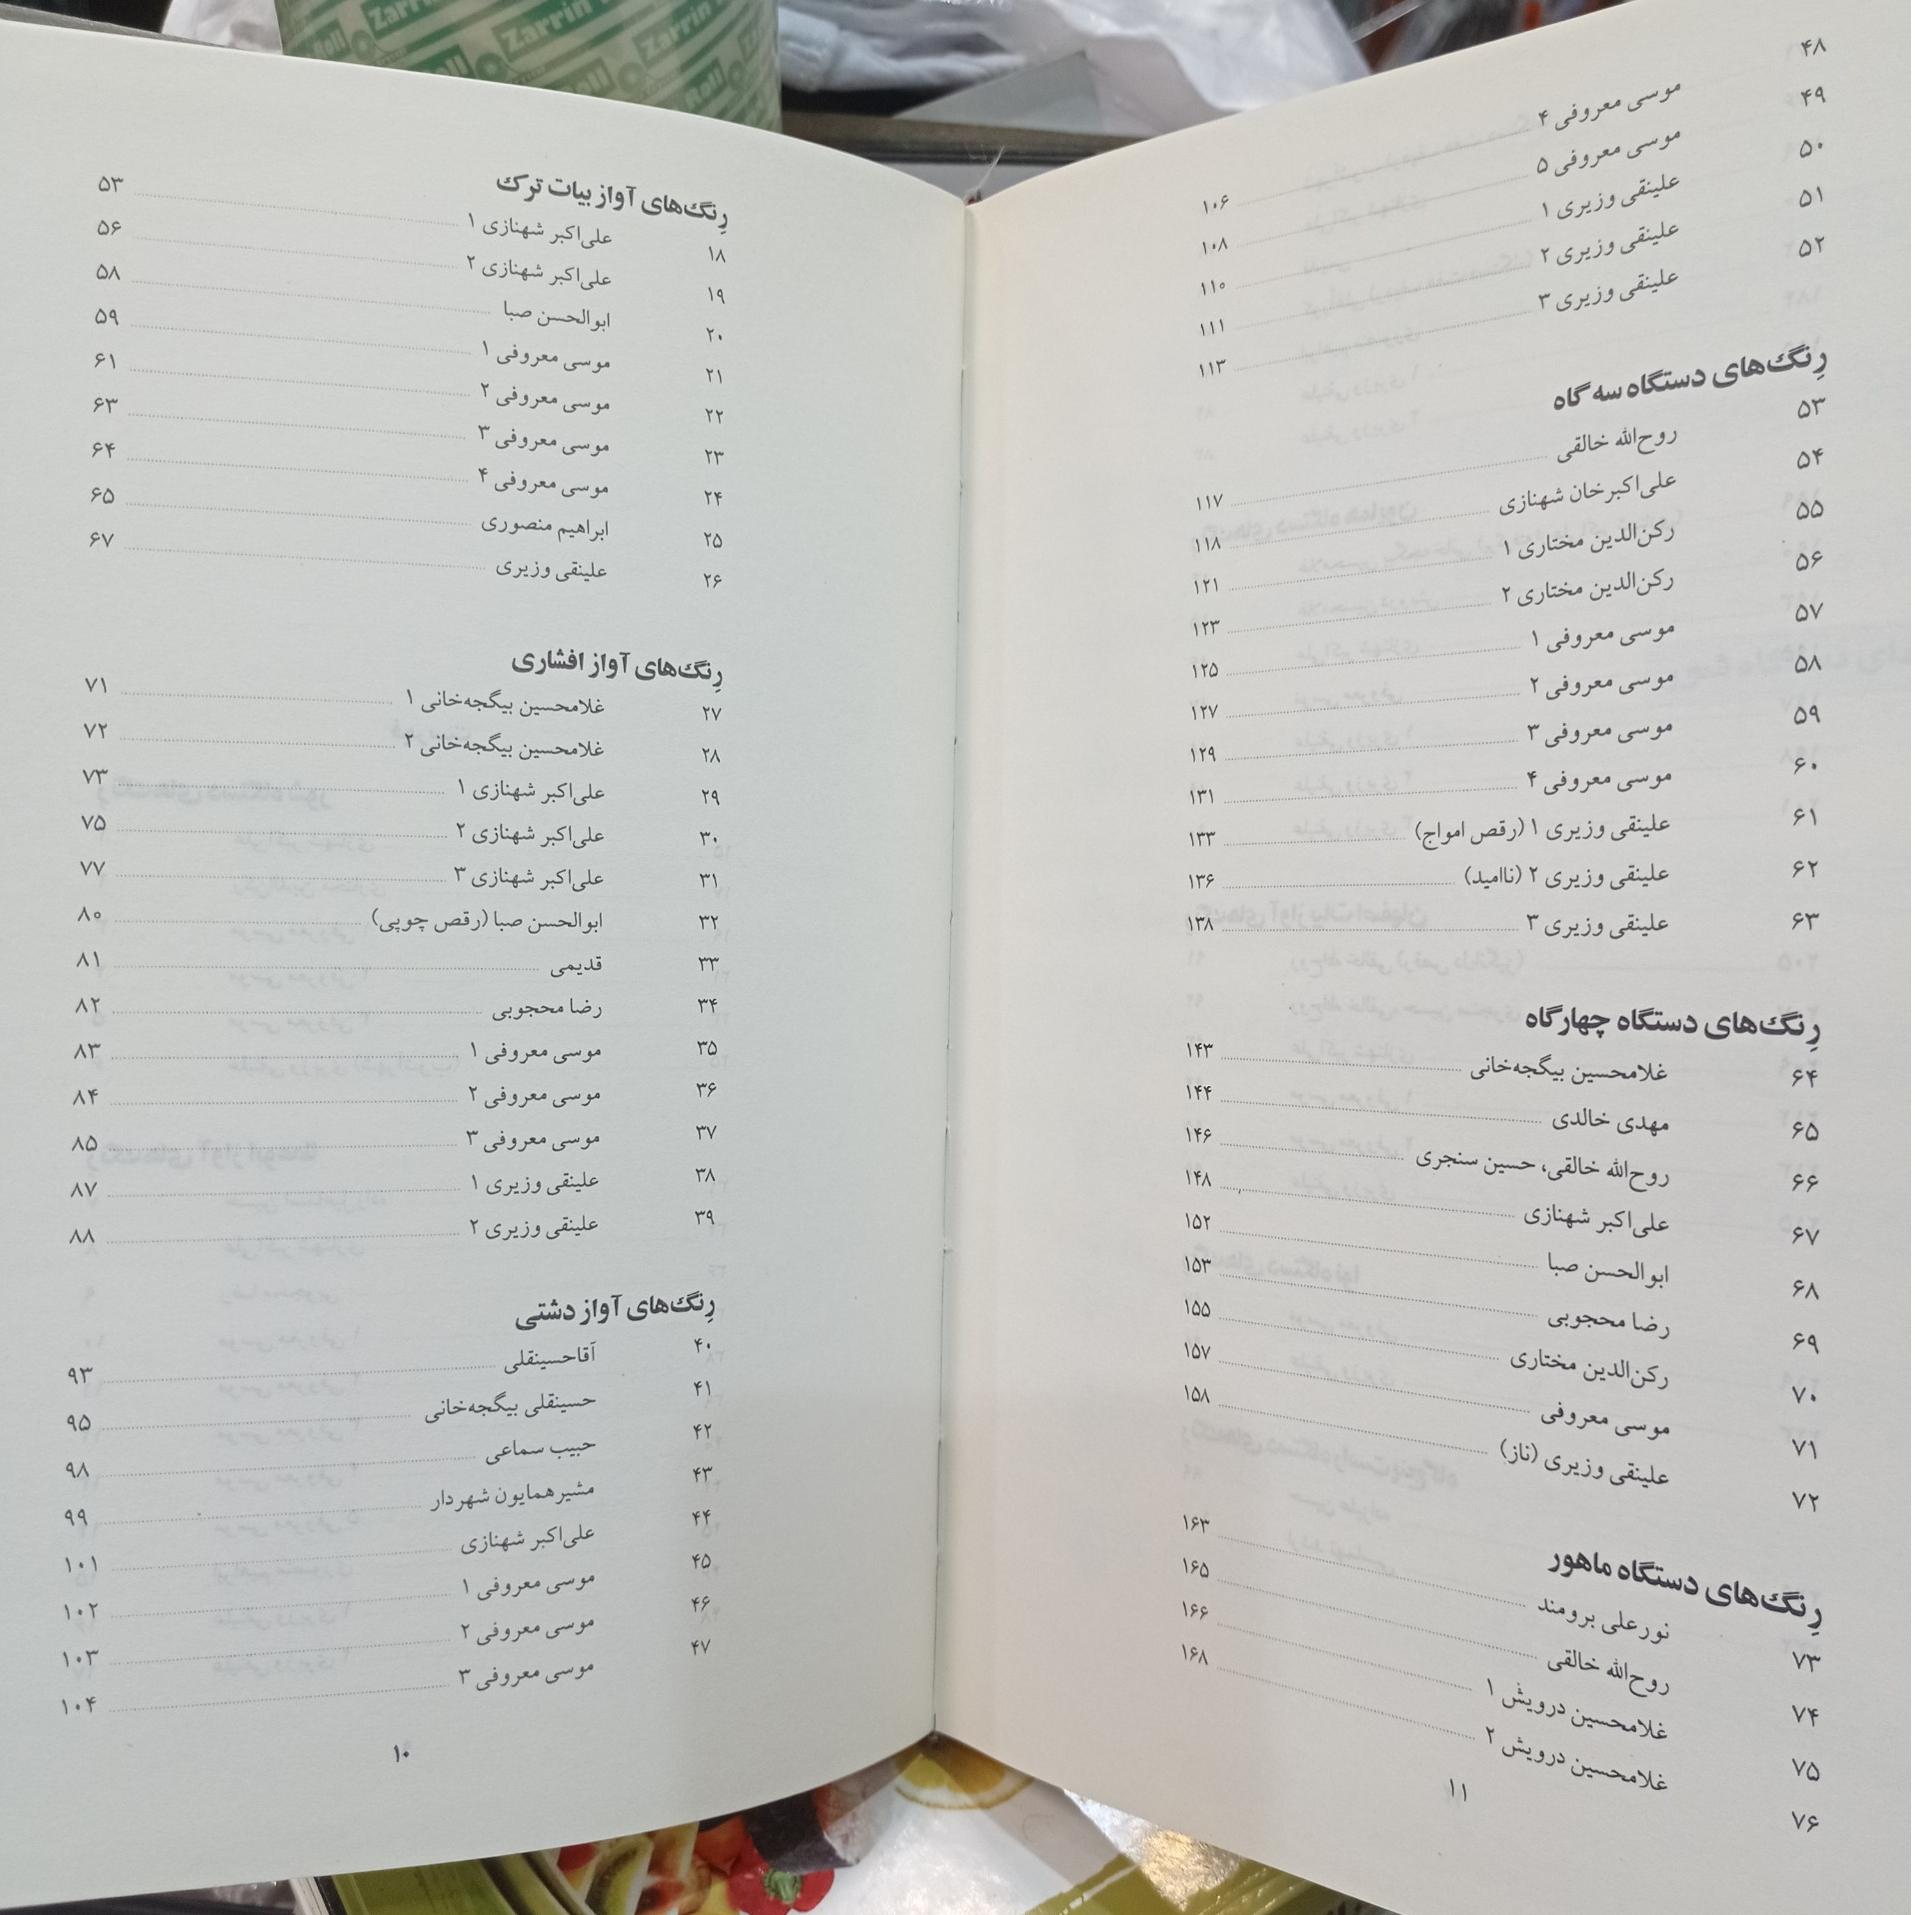 Zarrin Roll
رِنگ‌های آواز بیات ترک
۱۸ علی‌اکبر شهنازی ۱ ۵۳
۱۹ علی‌اکبر شهنازی ۲ ۵۶
۲۰ ابوالحسن صبا ۵۸
۲۱ موسی معروفی ۱ ۵۹
۲۲ موسی معروفی ۲ ۶۱
۲۳ موسی معروفی ۳ ۶۳
۲۴ موسی معروفی ۴ ۶۴
۲۵ ابراهیم منصوری ۶۵
۲۶ علینقی وزیری ۶۷
رِنگ‌های آواز افشاری
۲۷ غلامحسین بیگجه‌خانی ۱ ۷۱
۲۸ غلامحسین بیگجه‌خانی ۲ ۷۲
۲۹ علی‌اکبر شهنازی ۱ ۷۳
۳۰ علی‌اکبر شهنازی ۲ ۷۵
۳۱ علی‌اکبر شهنازی ۳ ۷۷
۳۲ ابوالحسن صبا (رقص چوپی) ۸۰
۳۳ قدیمی ۸۱
۳۴ رضا محجوبی ۸۲
۳۵ موسی معروفی ۱ ۸۳
۳۶ موسی معروفی ۲ ۸۴
۳۷ موسی معروفی ۳ ۸۵
۳۸ علینقی وزیری ۱ ۸۷
۳۹ علینقی وزیری ۲ ۸۸
رِنگ‌های آواز دشتی
۴۰ آقاحسینقلی ۹۳
۴۱ حسینقلی بیگجه‌خانی ۹۵
۴۲ حبیب سماعی ۹۸
۴۳ مشیرهمایون شهردار ۹۹
۴۴ علی‌اکبر شهنازی ۱۰۱
۴۵ موسی معروفی ۱ ۱۰۲
۴۶ موسی معروفی ۲ ۱۰۳
۴۷ موسی معروفی ۳ ۱۰۴
۱۰
۴۸ موسی معروفی ۴ ۱۰۶
۴۹ موسی معروفی ۵ ۱۰۸
۵۰ علینقی وزیری ۱ ۱۱۰
۵۱ علینقی وزیری ۲ ۱۱۱
۵۲ علینقی وزیری ۳ ۱۱۳
رِنگ‌های دستگاه سه گاه
۵۳ روح‌الله خالقی ۱۱۷
۵۴ علی‌اکبرخان شهنازی ۱۱۸
۵۵ رکن‌الدین مختاری ۱ ۱۲۱
۵۶ رکن‌الدین مختاری ۲ ۱۲۳
۵۷ موسی معروفی ۱ ۱۲۵
۵۸ موسی معروفی ۲ ۱۲۷
۵۹ موسی معروفی ۳ ۱۲۹
۶۰ موسی معروفی ۴ ۱۳۱
۶۱ علینقی وزیری ۱ (رقص امواج) ۱۳۳
۶۲ علینقی وزیری ۲ (ناامید) ۱۳۶
۶۳ علینقی وزیری ۳ ۱۳۸
رِنگ‌های دستگاه چهارگاه
۶۴ غلامحسین بیگجه‌خانی ۱۴۳
۶۵ مهدی خالدی ۱۴۴
۶۶ روح‌الله خالقی، حسین سنجری ۱۴۶
۶۷ علی‌اکبر شهنازی ۱۴۸
۶۸ ابوالحسن صبا ۱۵۲
۶۹ رضا محجوبی ۱۵۳
۷۰ رکن‌الدین مختاری ۱۵۵
۷۱ موسی معروفی ۱۵۷
۷۲ علینقی وزیری (ناز) ۱۵۸
رِنگ‌های دستگاه ماهور
۷۳ نورعلی برومند ۱۶۳
۷۴ روح‌الله خالقی ۱۶۵
۷۵ غلامحسین درویش ۱ ۱۶۶
۷۶ غلامحسین درویش ۲ ۱۶۸
۱۱